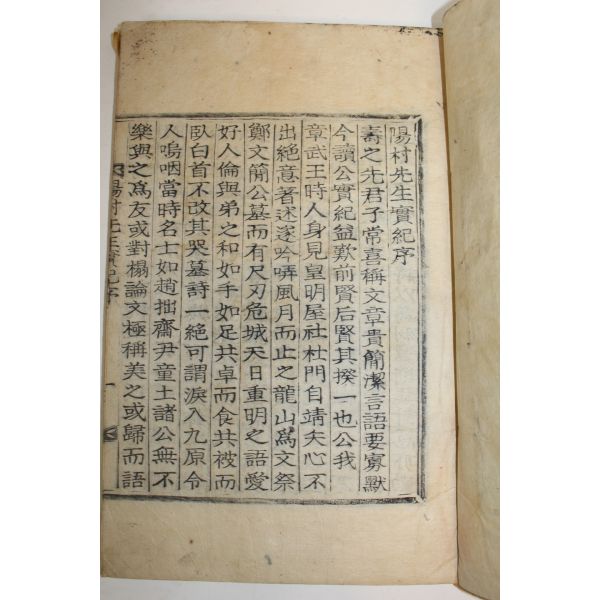 陽村先生實紀序
壽之先君子常喜稱文章貴簡潔言語要寡默
今讀公實紀益歎前賢后賢其揆一也公我
章武王時人身見皇明屋社杜門自靖矢心不
出絶意著述遂吟哢風月而止之龍山爲文祭
鄭文簡公墓而有尺刃危城天日重明之語愛
好人倫與弟之和如手如足共卓而食共被而
臥白首不改其哭墓詩一絶可謂淚入九原令
人嗚咽當時名士如趙拙齋尹童土諸公無不
樂與之爲友或對榻論文極稱美之或歸而語
陽村先生實紀序 一